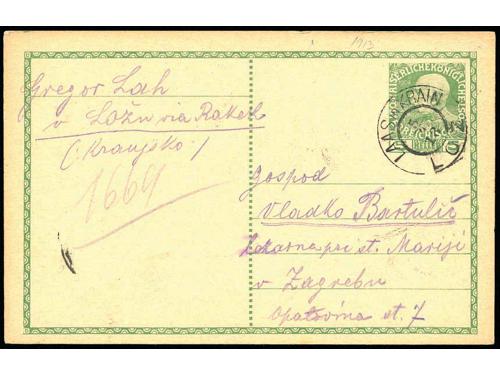 1913
Gregor Lah
v Ložu via Rakek
(Kranjsko)
1669
KAISERLICHE KÖNIGLICHE
LAAS KRAIN
LOŽ
Gospod
Vladko Bartulić
Lekarna pri st. Mariji
v Zagrebu
Opatovina st. 7